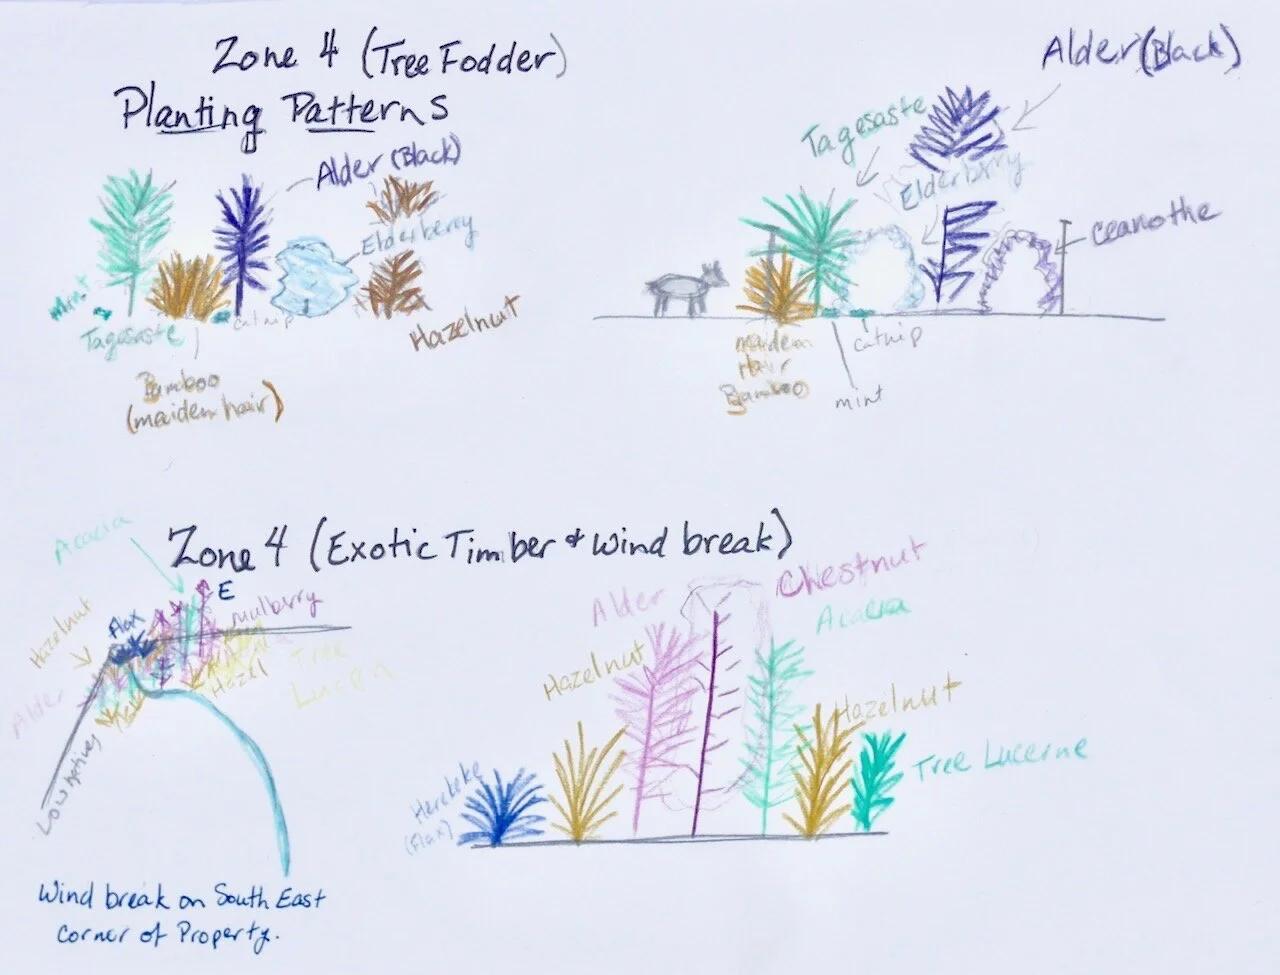 Zone 4 (Tree Fodder)
Planting Patterns
Alder (Black)
Elderberry
mint
Tagesaste
catnip
Hazelnut
Bamboo
(maidenhair)
Alder (Black)
Tagesaste
Elderberry
ceanothe
maiden
Hair
Bamboo
catnip
mint
Zone 4 (Exotic Timber & Wind break)
Acacia
E
Flax
mulberry
Hazelnut
Tree
Lucern
Hazel
Alder
Low natives
Alder
Chestnut
Acacia
Hazelnut
Hazelnut
Tree Lucerne
Harekeke
(Flax)
Wind break on South East
corner of Property.